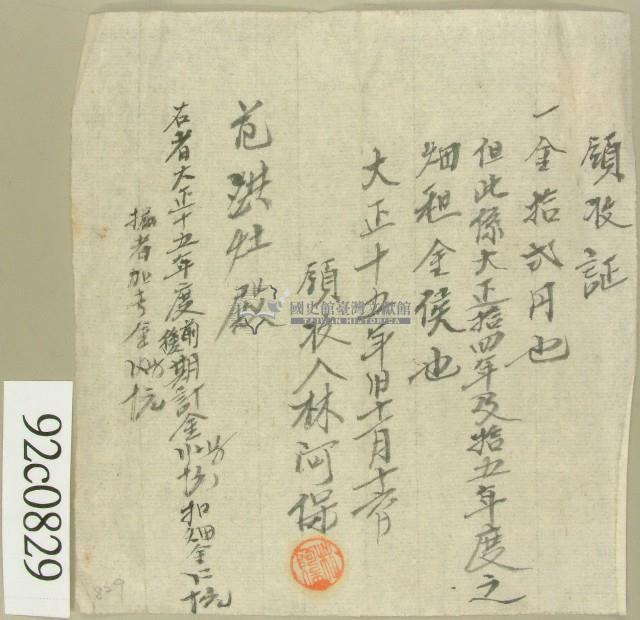 領收証
一金拾弍円也
但此係大正拾四年及拾五年度之
畑租金侯也
大正十五年旧十一月十
領收人林阿保
范洪灶殿
右者大正十五年度前後期訂金 扣畑金
者加 金
國史館臺灣文獻館
TAIWAN HISTORICA
92c0829
829